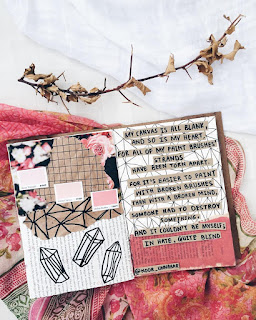 MY CANVAS IS ALL BLANK,
AND SO IS MY HEART,
FOR ALL OF MY PAINT BRUSHES'
STRANDS
HAVE BEEN TORN APART.
FOR IT'S EASIER TO PAINT
WITH BROKEN BRUSHES,
THAN WITH A BROKEN MIND,
SOMEONE HAD TO DESTROY
SOMETHING,
AND IT COULDN'T BE MYSELF,
IN HATE, QUITE BLIND